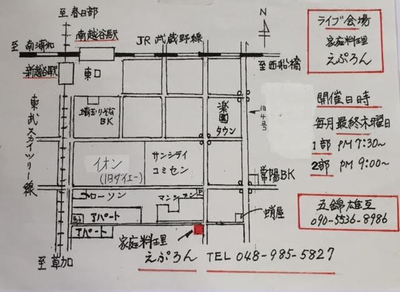 至春日部
南越谷駅
JR 武蔵野線
N
至南浦和
至西船橋
新越谷駅
東口
東武スカイツリー線
埼玉りそな
BK
楽園
タウン
旧4号
イオン
(旧ダイエー)
サンシティ
コミセン
常陽BK
ローソン
マンション
アパート
アパート
蛸屋
至草加
家庭料理
えぷろん TEL 048-985-5827
ライブ会場
家庭料理
えぷろん
開催日時
毎月最終木曜日
1部 PM 7:30~
2部 PM 9:00~
五錦雄互
090-5536-8986